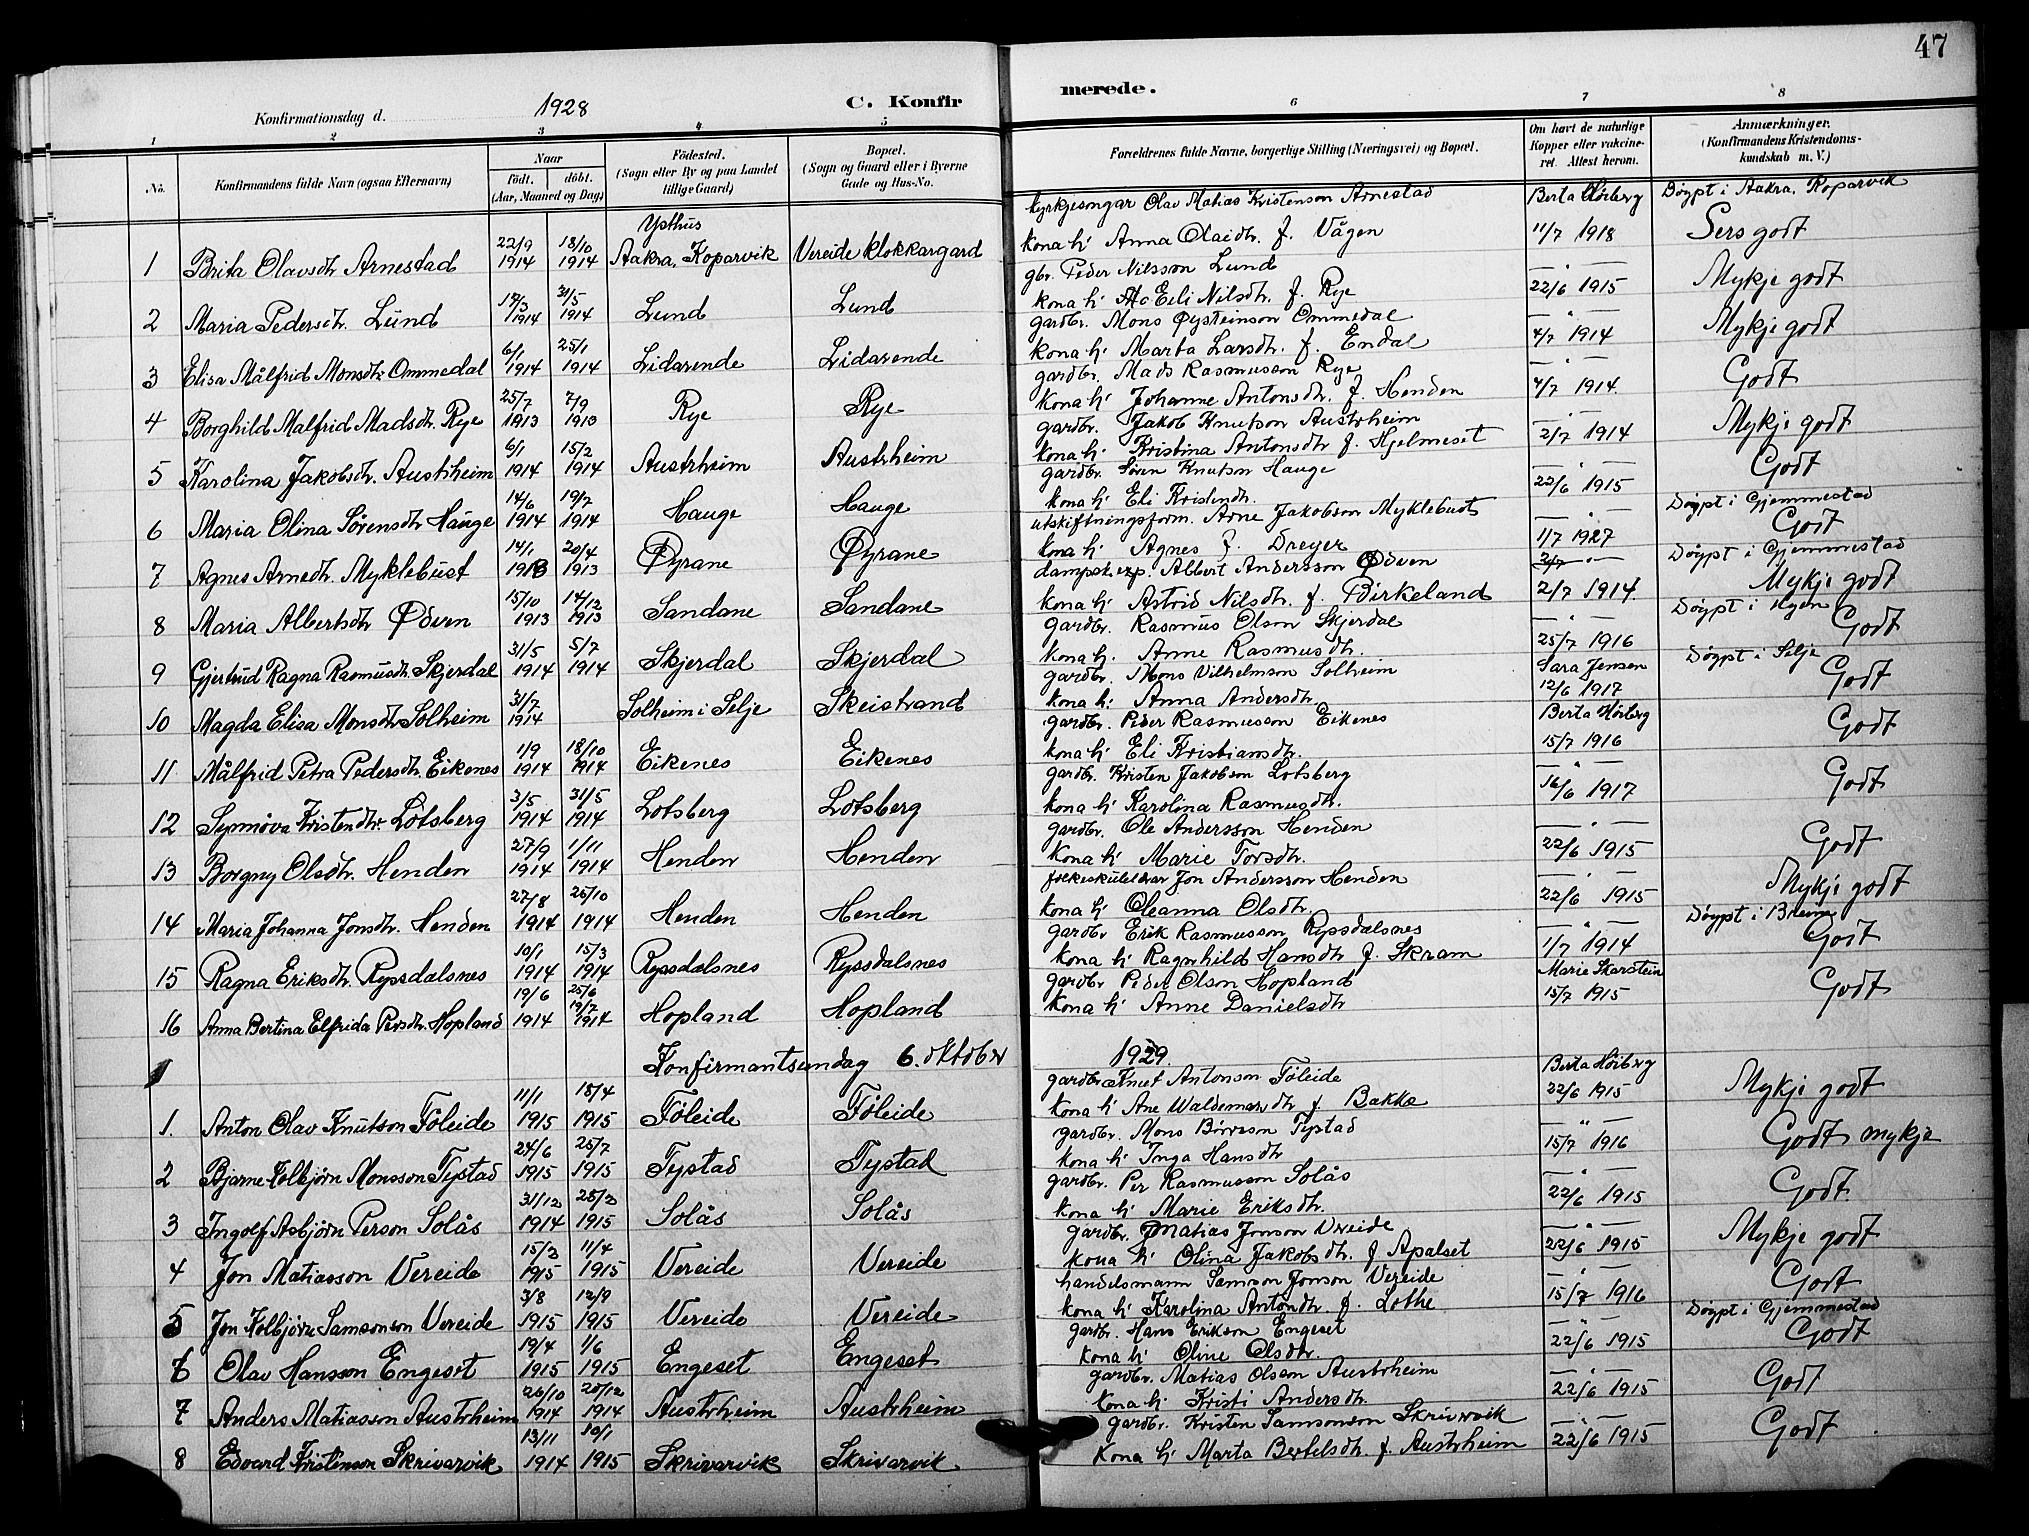 47
Konfirmationsdag d. 1928 C. Konfirmerede.
1 2 3 4 5 6 7 8
No. Konfirmandens fulde Navn (ogsaa Efternavn) Naar Födt. döbt. (Aar, Maaned og Dag) Födested. (Sogn eller By og paa Landet tillige Gaard) Bopæl. (Sogn og Gaard eller i Byerne Gade og Hus-No. Forældrenes fulde Navne, borgerlige Stilling (Næringsvei) og Bopæl. Om havt de naturlige Kopper eller vakcineret. Attest herom. Anmærkninger. (Konfirmandens Kristendomskundskab m. V.)
Ypthus kyrkjesongar Olav Matias Kristenson Arnestad Berta Hörberg Döypt i Aakra, Koparvik
1 Brita Olavsdtr Arnestad 22/9 1914 18/10 1914 Aakra, Koparvik Vereide klokkargard kona h: Anna Olaidtr. f. Vågen 11/7 1918 Sers godt
gbr. Peder Nilsson Lund
2 Maria Pedersdtr. Lund 17/3 1914 31/5 1914 Lund Lund kona h: Eli Nilsdtr. f. Rye 22/6 1915 Mykje godt
gardbr. Mons Øysteinson Ommedal
3 Elisa Målfrid Monsdtr Ommedal 6/1 1914 25/1 1914 Lidarende Lidarende kona h: Marta Larsdtr. f. Endal 4/7 1914 Mykje godt
gardbr. Mads Rasmusson Rye
4 Borghild Malfrid Madsdtr. Rye 25/7 1913 7/9 1913 Rye Rye kona h: Johanne Antonsdtr. f. Henden 4/7 1914. Godt
gardbr. Jakob Knutson Austrheim
5 Karolina Jakobsdtr. Austrheim 6/1 1914 15/2 1914 Austrheim Austrheim kona h: Kristina Antonsdtr f. Hjelmeset 2/7 1914 Mykje godt
gardbr. Søren Knutson Hauge
6 Maria Olina Sørensdtr Hauge 14/6 1914 19/7 1914 Hauge Hauge kona h: Eli Kristendtr. 22/6 1915 Godt
utskiftningsform. Arne Jakobson Myklebust Döypt i Gjemmestad
7 Agnes Arnedtr. Myklebust 14/1 1913 20/4 1913 Øyrane Øyrane kona h: Agnes f. Dreyer 1/7 1927 Godt
dampsk.exp. Albert Andersson Ødven Döypt i Gjemmestad
8 Maria Albertsdtr Ødven 15/10 1913 14/12 1913 Sandane Sandane kona h: Astrid Nilsdtr. f. Birkeland 2/7 1914. Mykje godt
gardbr. Rasmus Olson Skjerdal Döypt i Hyen
9 Gjertrud Ragna Rasmusdtr. Skjerdal 31/5 1914 5/7 1914 Skjerdal Skjerdal kona h. Anne Rasmusdtr. 25/7 1916 Godt
gardbr. Mons Vilhelmson Solheim Sara Jensen Döypt i Selje
10 Magda Elisa Monsdtr Solheim 31/7 1914 Solheim i Selje Skeistrand kona h: Anna Andersdtr. 12/6 1917 Godt
gardbr. Peder Rasmusson Eikenes Berta Hörberg
11 Målfrid Petra Pedersdtr Eikenes 1/9 1914 18/10 1914 Eikenes Eikenes kona h: Eli Kristiansdtr. 15/7 1916 Godt
gardbr. Kristen Jakobson Lotsberg
12 Synnöva Kristendtr. Lotsberg 3/5 1914 31/5 1914 Lotsberg Lotsberg kona h: Karolina Rasmusdtr. 16/6 1917 Godt
gardbr. Ole Andersson Henden
13 Borgny Olsdtr. Henden 27/9 1914 1/11 1914 Henden Henden kona h: Marie Torsdtr. 22/6 1915 Godt
folkeskulelærar Jon Andersson Henden
14 Maria Johanna Jonsdtr. Henden 27/8 1914 25/10 1914 Henden Henden kona h: Oleanna Olsdtr. 22/6 1915 Mykje godt
gardbr Erik Rasmusson Ryssdalsnes Döypt i Breim
15 Ragna Eriksdtr Ryssdalsnes 10/1 1914 15/3 1914 Ryssdalsnes Ryssdalsnes kona h: Ragnhild Hansdtr f. Skram 1/7 1914 Godt
gardbr Peder Olson Hopland Marie Skarstein
16 Anna Bertina Elfrida Persdtr. Hopland 19/6 1914 25/6 19/7 1914 Hopland Hopland kona h: Anne Danielsdtr 15/7 1915 Godt
Konfirmantsundag 6. oktober 1929.
gardbr. Knut Antonson Föleide Berta Hörberg
1. Anton Olav Knutson Föleide 11/1 1915 18/4 1915 Föleide Föleide kona h: Ane Waldemarsdtr f. Bakke 22/6 1915 Mykje godt
gardbr. Mons Börreson Tystad
2 Bjarne Kolbjörn Monsson Tystad 24/6 1915 25/7 1915 Tystad Tystad kona h: Inga Hansdtr 15/7 1916 Godt mykje
gardbr. Per Rasmusson Solås
3 Ingolf Asbjörn Person Solås 31/12 1914 28/2 1915 Solås Solås kona h: Marie Eriksdtr. 22/6 1915 Godt
gardbr. Matias Jonson Vereide
4 Jon Matiasson Vereide 15/2 1915 11/4 1915 Vereide Vereide kona h: Olina Jakobsdtr. f Apalset 22/6 1915 Mykje godt
handelsmann Samson Jonson Vereide
5 Jon Kolbjörn Samsonson Vereide 3/8 1915 12/9 1915 Vereide Vereide kona h: Karolina Antondtr. f. Lothe 15/7 1916 Godt
gardbr. Hans Erikson Engeset Döypt i Gjemmestad
6 Olav Hansson Engeset 19/4 1915 1/6 1915 Engeset Engeset kona h: Oline Olsdtr. 22/6 1915 Godt
gardbr. Matias Olsson Austrheim
7 Anders Matiasson Austrheim 26/10 1914 20/12 1914 Austrheim Austrheim kona h: Kristi Andersdtr. 22/6 1915 Godt
gardbr. Kristen Samsonson Skrivarvik
8 Edvard Kristenson Skrivarvik 13/11 1914 10/1 1915 Skrivarvik Skrivarvik kona h: Marta Bertelsdtr f. Austrheim 22/6 1915 Godt